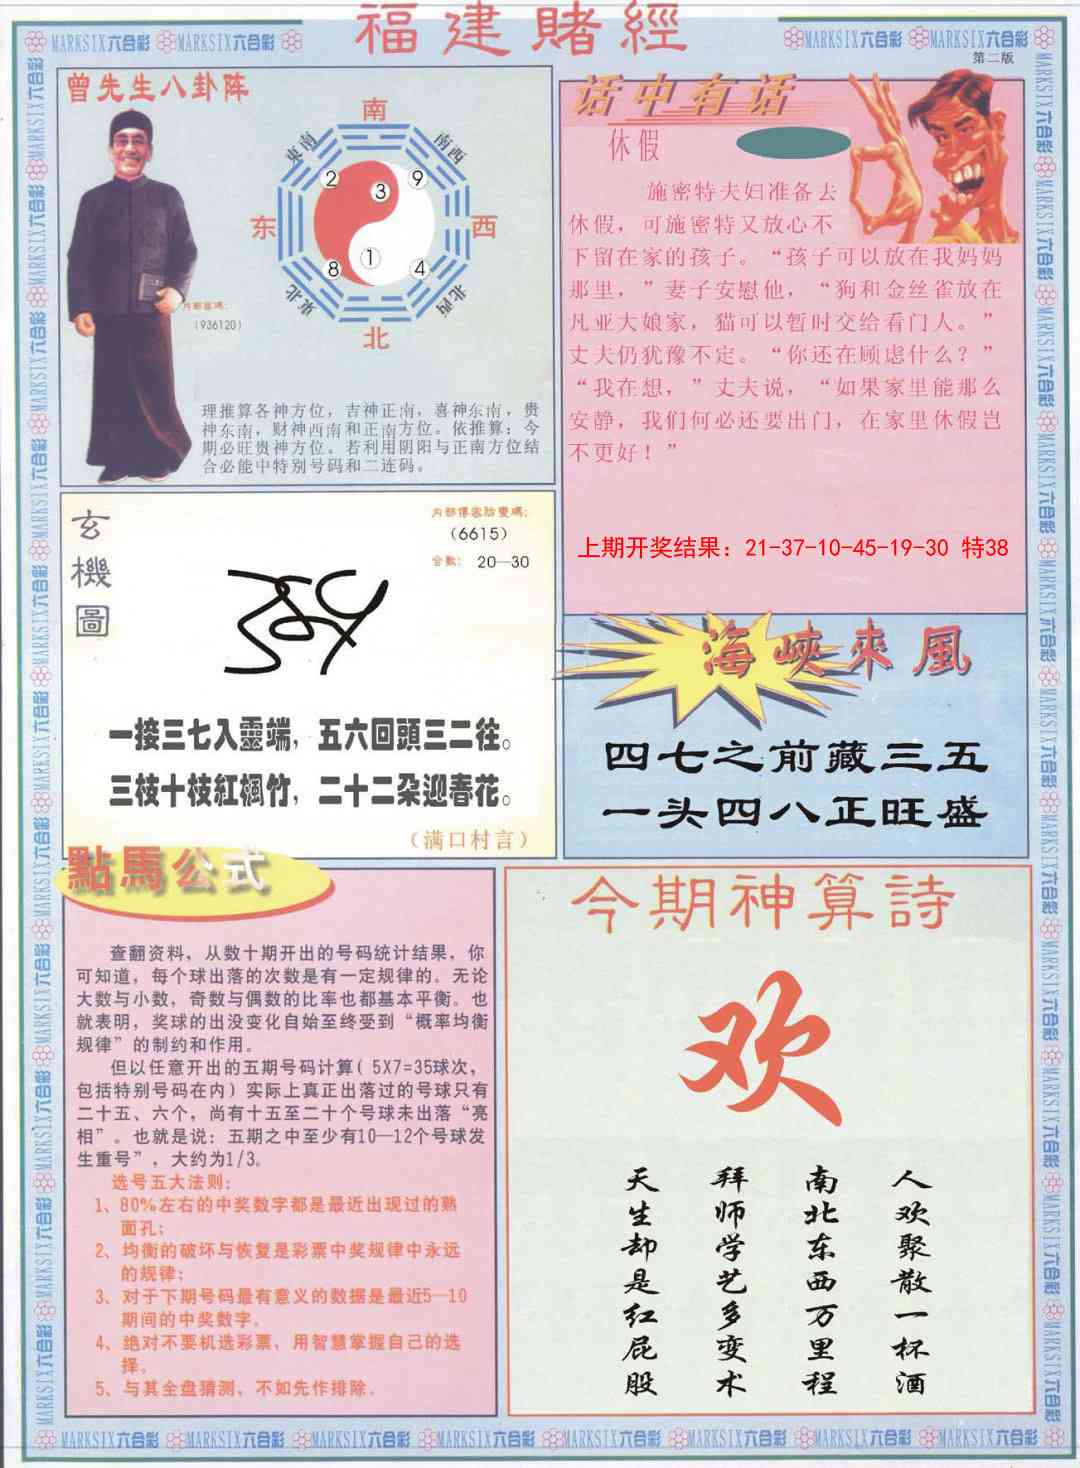 福建賭經
MARKSIX六合彩 MARKSIX六合彩 MARKSIX六合彩 MARKSIX六合彩
第二版
曾先生八卦阵
南
東南 南西
2 3 9
东 西
8 1 4
東北 北西
北
内部密碼：
（936120）
理推算各神方位，吉神正南，喜神东南，贵
神东南，财神西南和正南方位。依推算：今
期必旺贵神方位。若利用阴阳与正南方位结
合必能中特别号码和二连码。
话中有话
休假
施密特夫妇准备去
休假，可施密特又放心不
下留在家的孩子。“孩子可以放在我妈妈
那里，”妻子安慰他，“狗和金丝雀放在
凡亚大娘家，猫可以暂时交给看门人。”
丈夫仍犹豫不定。“你还在顾虑什么？”
“我在想，”丈夫说，“如果家里能那么
安静，我们何必还要出门，在家里休假岂
不更好！”
上期开奖结果：21-37-10-45-19-30 特38
玄機圖
内部傳密胎靈碼：
（6615）
合数： 20—30
一接三七入靈端，五六回頭三二往。
三枝十枝紅楓竹，二十二朵迎春花。
（满口村言）
海峽來風
四七之前藏三五
一头四八正旺盛
點馬公式
查翻资料，从数十期开出的号码统计结果，你
可知道，每个球出落的次数是有一定规律的。无论
大数与小数，奇数与偶数的比率也都基本平衡。也
就表明，奖球的出没变化自始至终受到“概率均衡
规律”的制约和作用。
但以任意开出的五期号码计算( 5X7=35球次，
包括特别号码在内）实际上真正出落过的号球只有
二十五、六个，尚有十五至二十个号球未出落“亮
相”。也就是说：五期之中至少有10—12个号球发
生重号”，大约为1/3。
选号五大法则：
1、80%左右的中奖数字都是最近出现过的熟
面孔；
2、均衡的破坏与恢复是彩票中奖规律中永远
的规律；
3、对于下期号码最有意义的数据是最近5—10
期间的中奖数字。
4、绝对不要机选彩票，用智慧掌握自己的选
择。
5、与其全盘猜测，不如先作排除。
今期神算詩
欢
人欢聚散一杯酒
南北东西万里程
拜师学艺多变术
天生却是红屁股
MARKSIX六合彩 MARKSIX六合彩 MARKSIX六合彩 MARKSIX六合彩 MARKSIX六合彩 MARKSIX六合彩 MARKSIX六合彩 MARKSIX六合彩